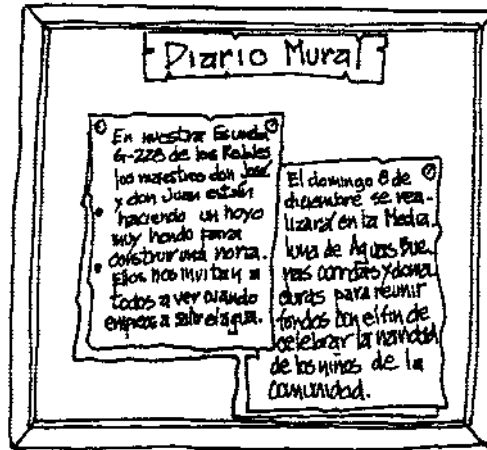 Diario Mural
En nuestra Escuela
G-228 de los Robles
los maestros don José
y don Juan están
haciendo un hoyo
muy hondo para
construir una noria.
Ellos nos invitan a
todos a ver cuando
empieza a salir el agua.
El domingo 8 de
diciembre se rea-
lizará en la Media
luna de Aguas Bue-
nas corridas y doma
duras para reunir
fondos con el fin de
celebrar la navidad
de los niños de la
comunidad.